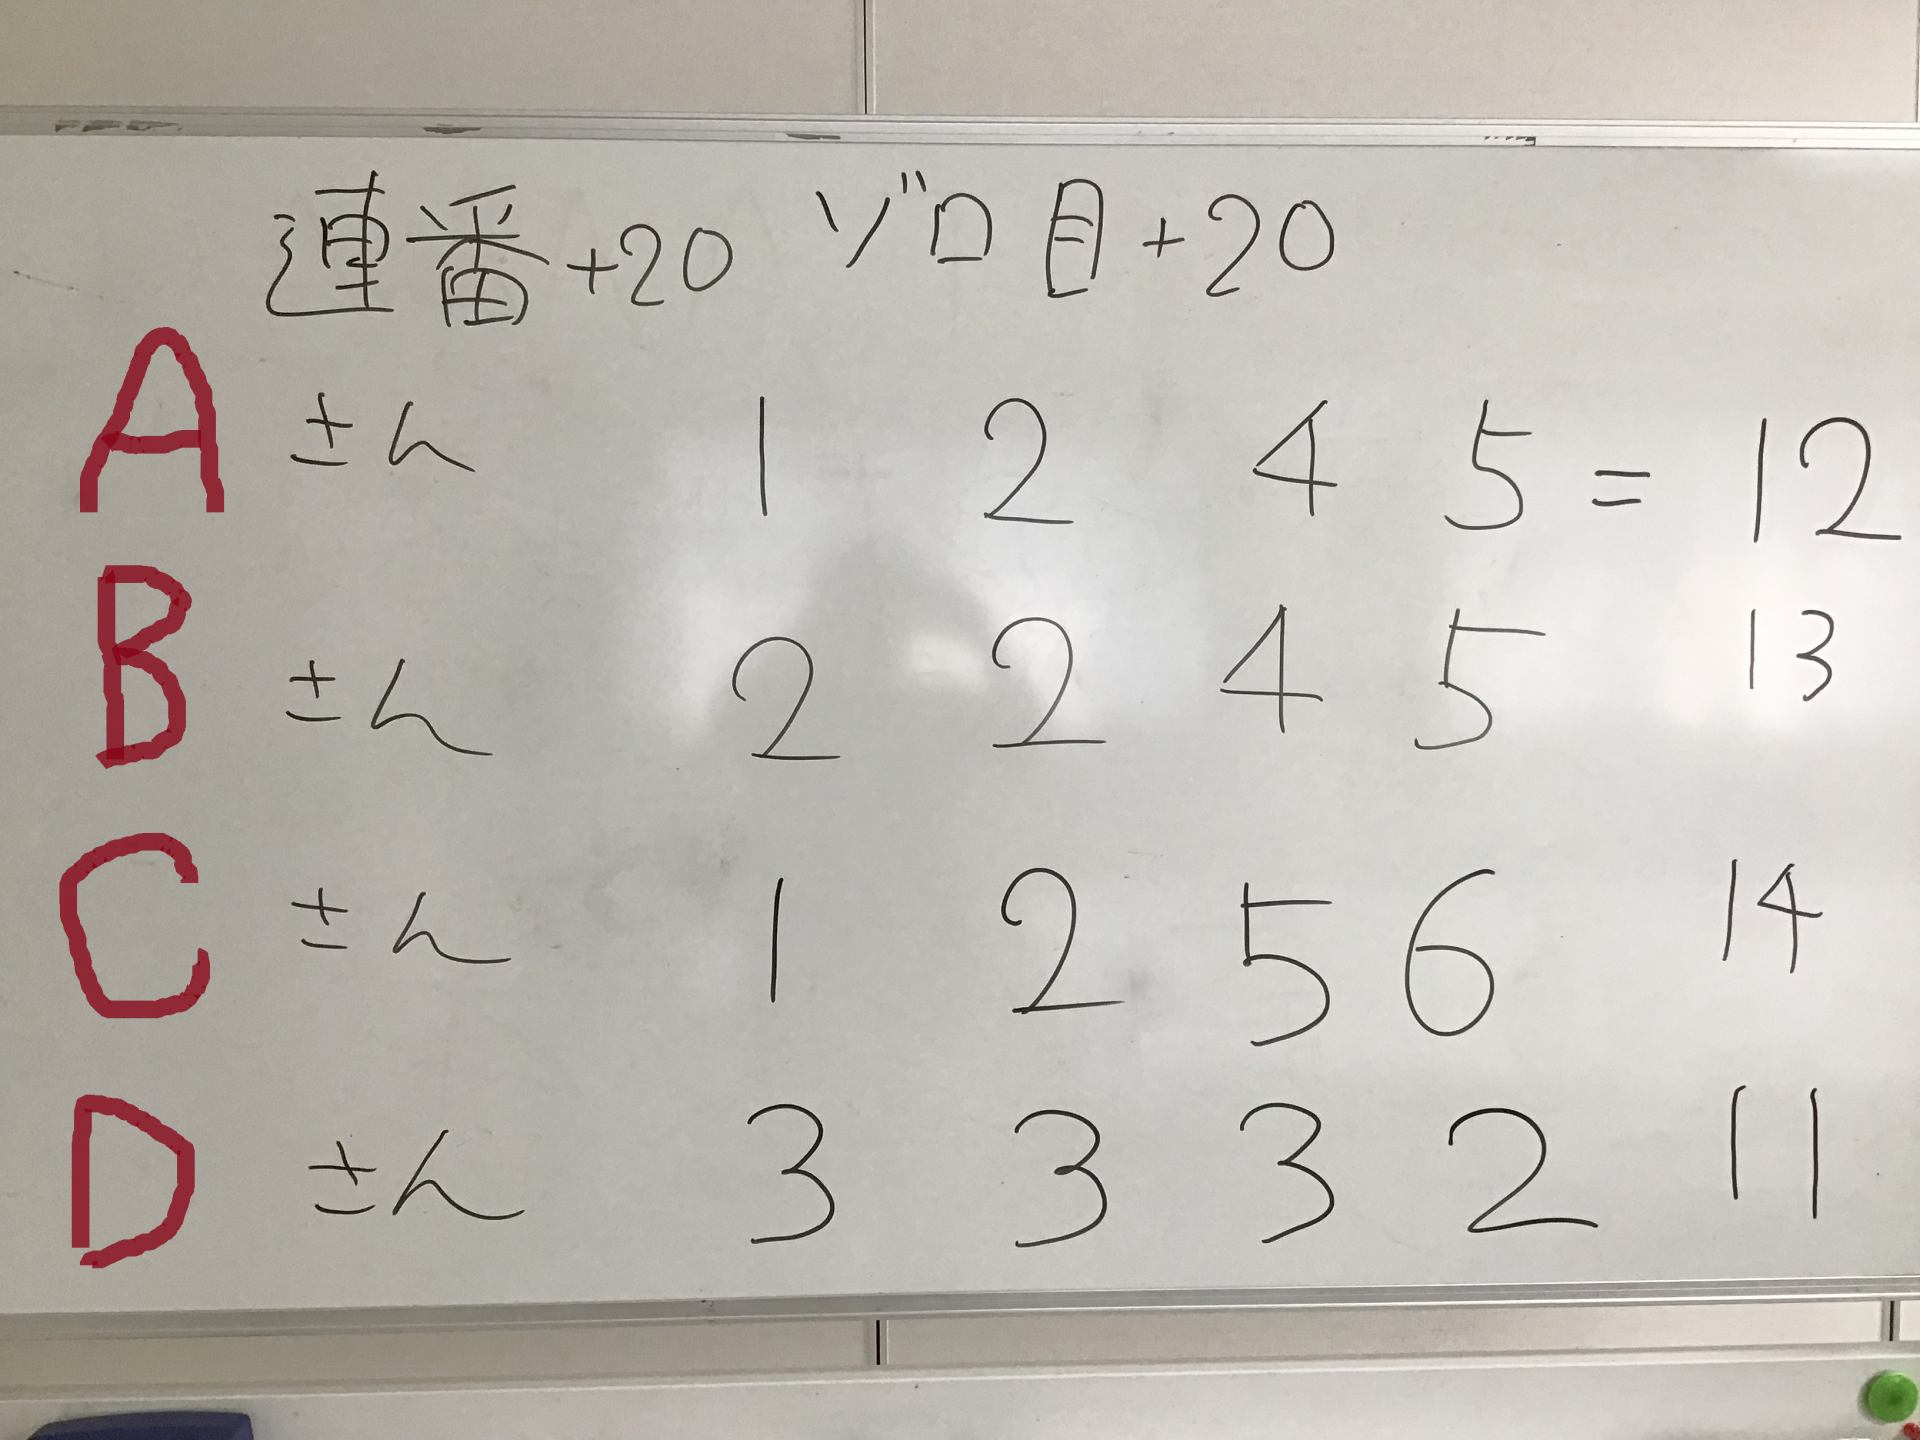 連番+20 ゾロ目+20
A さん 1 2 4 5 = 12
B さん 2 2 4 5 13
C さん 1 2 5 6 14
D さん 3 3 3 2 11